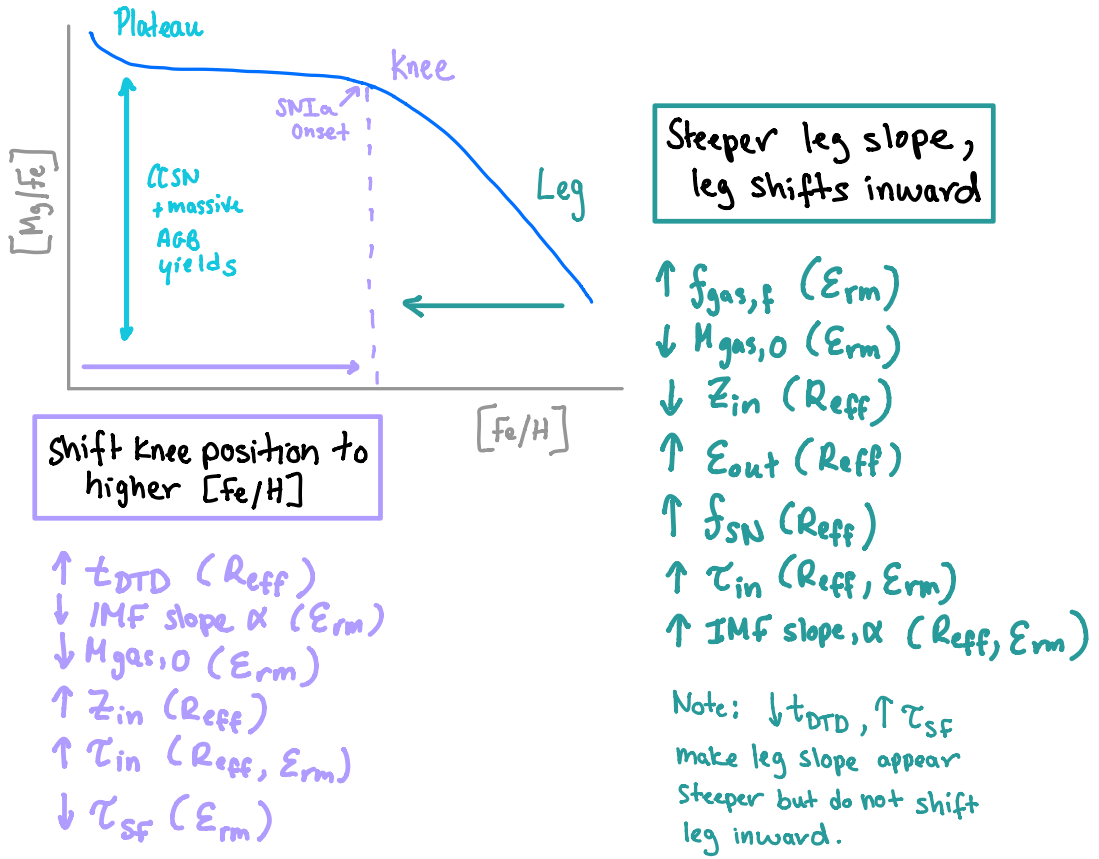 Plateau
Knee
SNIa
onset
CCSN
+ massive
AGB
yields
Leg
[Mg/Fe]
[Fe/H]
Shift knee position to
higher [Fe/H]
↑ t_DTD (R_eff)
↓ IMF slope α (ε_rm)
↓ M_gas,0 (ε_rm)
↑ Z_in (R_eff)
↑ τ_in (R_eff, ε_rm)
↓ τ_SF (ε_rm)
Steeper leg slope,
leg shifts inward
↑ f_gas,f (ε_rm)
↓ M_gas,0 (ε_rm)
↓ Z_in (R_eff)
↑ ε_out (R_eff)
↑ f_SN (R_eff)
↑ τ_in (R_eff, ε_rm)
↑ IMF slope, α (R_eff, ε_rm)
Note: ↓ t_DTD, ↑ τ_SF
make leg slope appear
steeper but do not shift
leg inward.